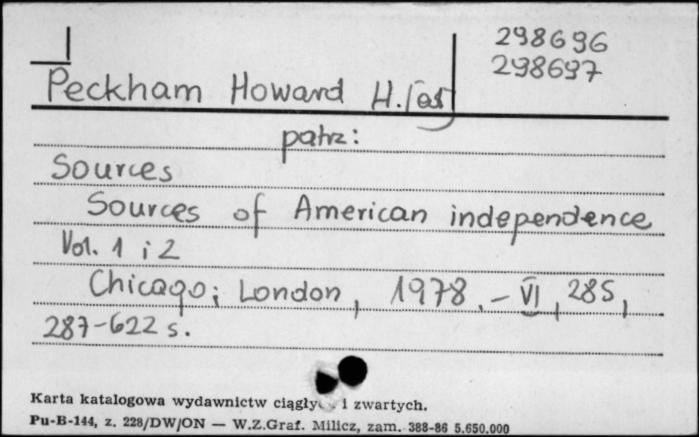 298696
298697
Peckham Howard H.
patrz:
Sources
Sources of American independence
Vol. 1 i 2
Chicago; London, 1978. - VI, 285,
287-622 s.
Karta katalogowa wydawnictw i zwartych.
Pu-B-144, z. 228/DW/ON — W.Z.Graf. Milicz, zam. 388-86 5.650.000